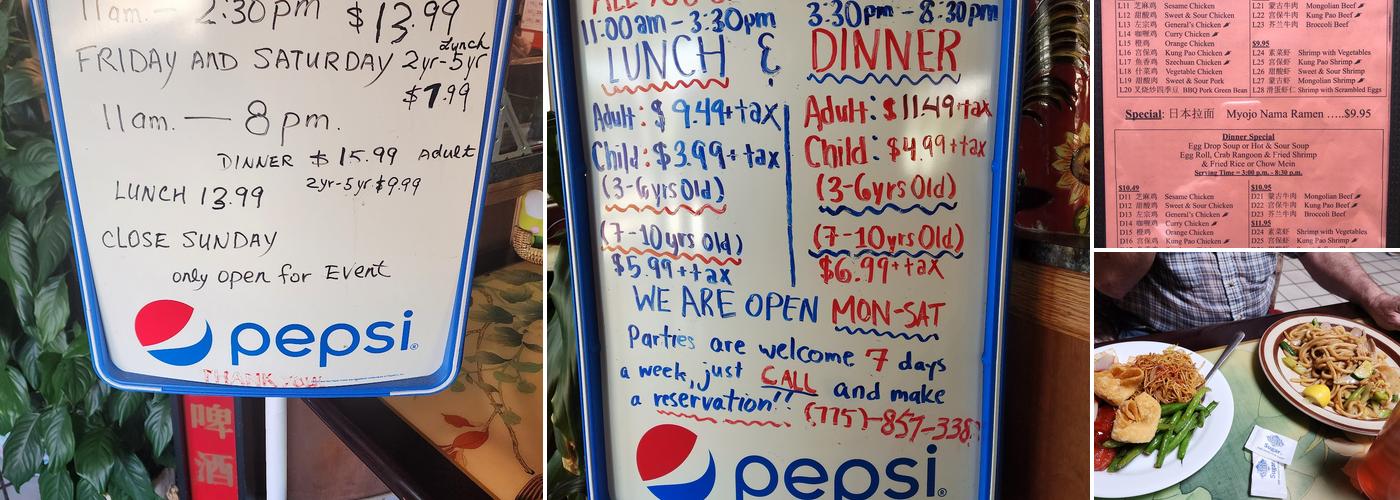 11am. — 2:30pm $13.99
Lunch
FRIDAY AND SATURDAY 2yr-5yr
$7.99
11am. — 8pm.
DINNER $15.99 Adult
2yr-5yr $9.99
LUNCH 13.99
CLOSE SUNDAY
only open for Event
pepsi
THANK YOU
啤
酒
11:00am-3:30pm 3:30pm-8:30pm
LUNCH & DINNER
Adult: $9.49+tax Adult: $11.49+tax
Child: $3.99+tax Child: $4.99+tax
(3-6yrs Old) (3-6yrs Old)
(7-10yrs Old) (7-10yrs Old)
$5.99+tax $6.99+tax
WE ARE OPEN MON-SAT
Parties are welcome 7 days
a week, just CALL and make
a reservation!! (775)-857-338
pepsi
L11 芝麻鸡 Sesame Chicken
L12 甜酸鸡 Sweet & Sour Chicken
L13 左宗鸡 General's Chicken
L14 咖喱鸡 Curry Chicken
L15 橙鸡 Orange Chicken
L16 宫保鸡 Kung Pao Chicken
L17 鱼香鸡 Szechuan Chicken
L18 什菜鸡 Vegetable Chicken
L19 甜酸肉 Sweet & Sour Pork
L20 叉烧炒四季豆 BBQ Pork Green Bean
L21 蒙古牛肉 Mongolian Beef
L22 宫保牛肉 Kung Pao Beef
L23 芥兰牛肉 Broccoli Beef
$9.95
L24 素菜虾 Shrimp with Vegetables
L25 宫保虾 Kung Pao Shrimp
L26 甜酸虾 Sweet & Sour Shrimp
L27 蒙古虾 Mongolian Shrimp
L28 滑蛋虾仁 Shrimp with Scrambled Eggs
Special: 日本拉面 Myojo Nama Ramen .....$9.95
Dinner Special
Egg Drop Soup or Hot & Sour Soup
Egg Roll, Crab Rangoon & Fried Shrimp
& Fried Rice or Chow Mein
Serving Time = 3:00 p.m. - 8:30 p.m.
$10.49
D11 芝麻鸡 Sesame Chicken
D12 甜酸鸡 Sweet & Sour Chicken
D13 左宗鸡 General's Chicken
D14 咖喱鸡 Curry Chicken
D15 橙鸡 Orange Chicken
D16 宫保鸡 Kung Pao Chicken
$10.95
D21 蒙古牛肉 Mongolian Beef
D22 宫保牛肉 Kung Pao Beef
D23 芥兰牛肉 Broccoli Beef
$11.95
D24 素菜虾 Shrimp with Vegetables
D25 宫保虾 Kung Pao Shrimp
Sugar
Sugar